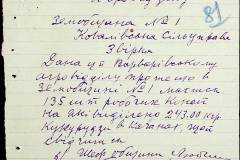 81
Земобщина № 1
Ковалівська Сільуправа
Звірка
Дана ця Варварівському
агровідділу про що в
Земобщині № 1 мається
135 шт робочих коней
на які виділено 243.00 кгр
Кукурудзи в качанах, що й
свідчиться